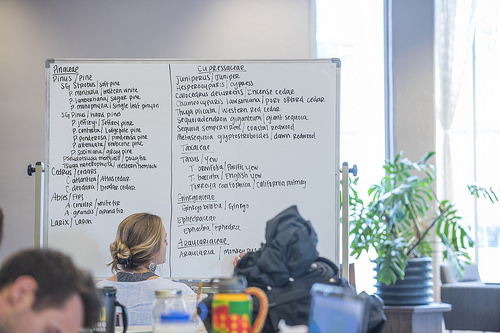 Pinaceae
Pinus / pine
SG Strobus / soft pine
P. monticola / western white
P. lambertiana / sugar pine
P. monophylla / single leaf pinyon
SG Pinus / hard pine
P. jeffreyi / Jeffrey pine
P. contorta / lodgepole pine
P. ponderosa / ponderosa pine
P. attenuata / knobcone pine
P. sabiniana / gray pine
Cedrus / cedars
C. atlantica / Atlas cedar
C. deodara / deodar cedar
Abies / Firs
A. concolor / white fir
A. grandis / grand fir
Larix / Larch
Cupressaceae
Juniperus / Juniper
Hesperocyparis / cypress
Calocedrus decurrens / Incense cedar
Chamaecyparis lawsoniana / port orford cedar
Thuja plicata / Western red cedar
Sequoiadendron giganteum / giant sequoia
Sequoia sempervirens / coastal redwood
Metasequoia glyptostroboides / dawn redwood
Taxaceae
Taxus / yew
T. brevifolia / Pacific yew
T. baccata / English yew
Torreya californica / California nutmeg
Ginkgoaceae
Ginkgo biloba / Ginkgo
Ephedraceae
Ephedra / Ephedra
Araucariaceae
Araucaria /